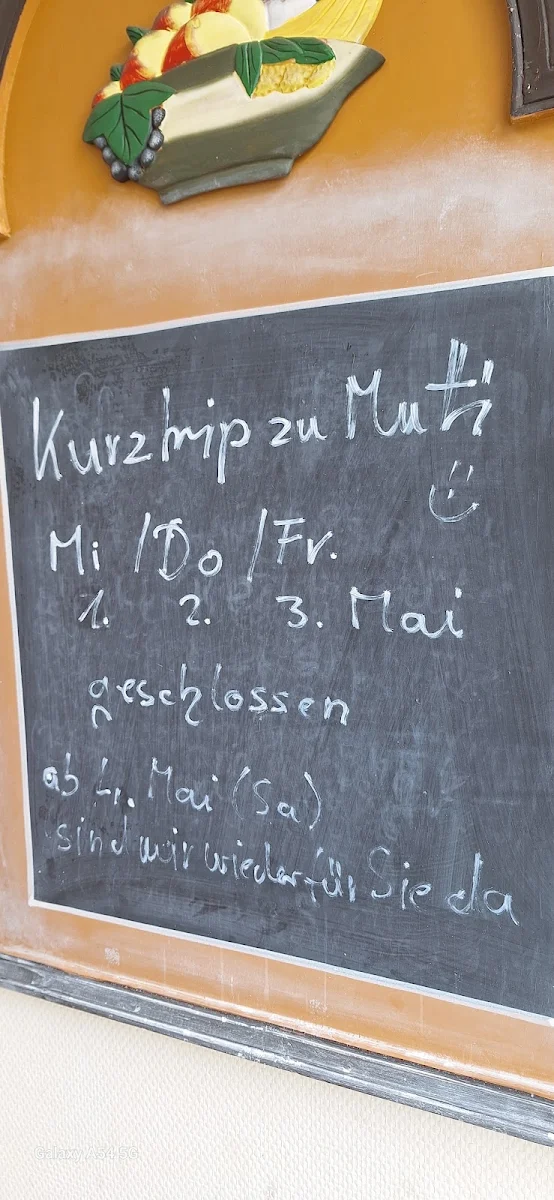 Kurztrip zu Muti
Mi / Do / Fr.
1. 2. 3. Mai
geschlossen
ab 4. Mai (Sa)
sind wir wieder für Sie da
Galaxy A54 5G